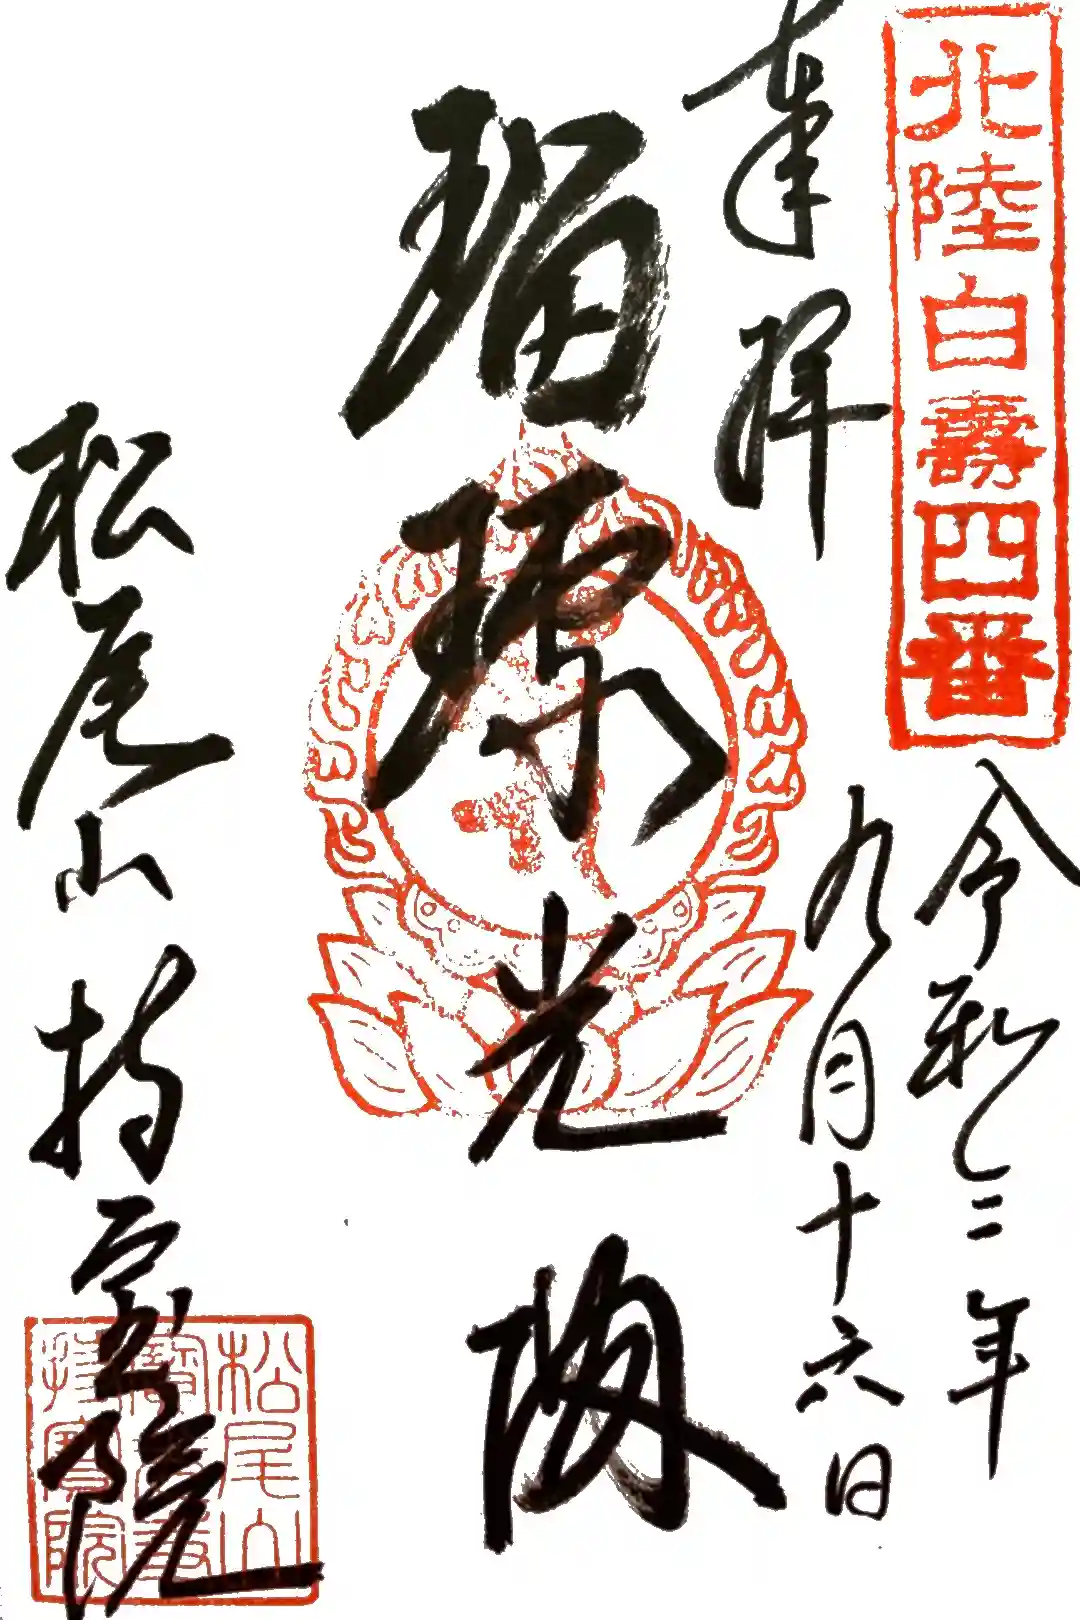 北陸白壽四番
奉拝
令和三年
九月十六日
瑠璃光
松尾山持宝院
松尾山
持寶院